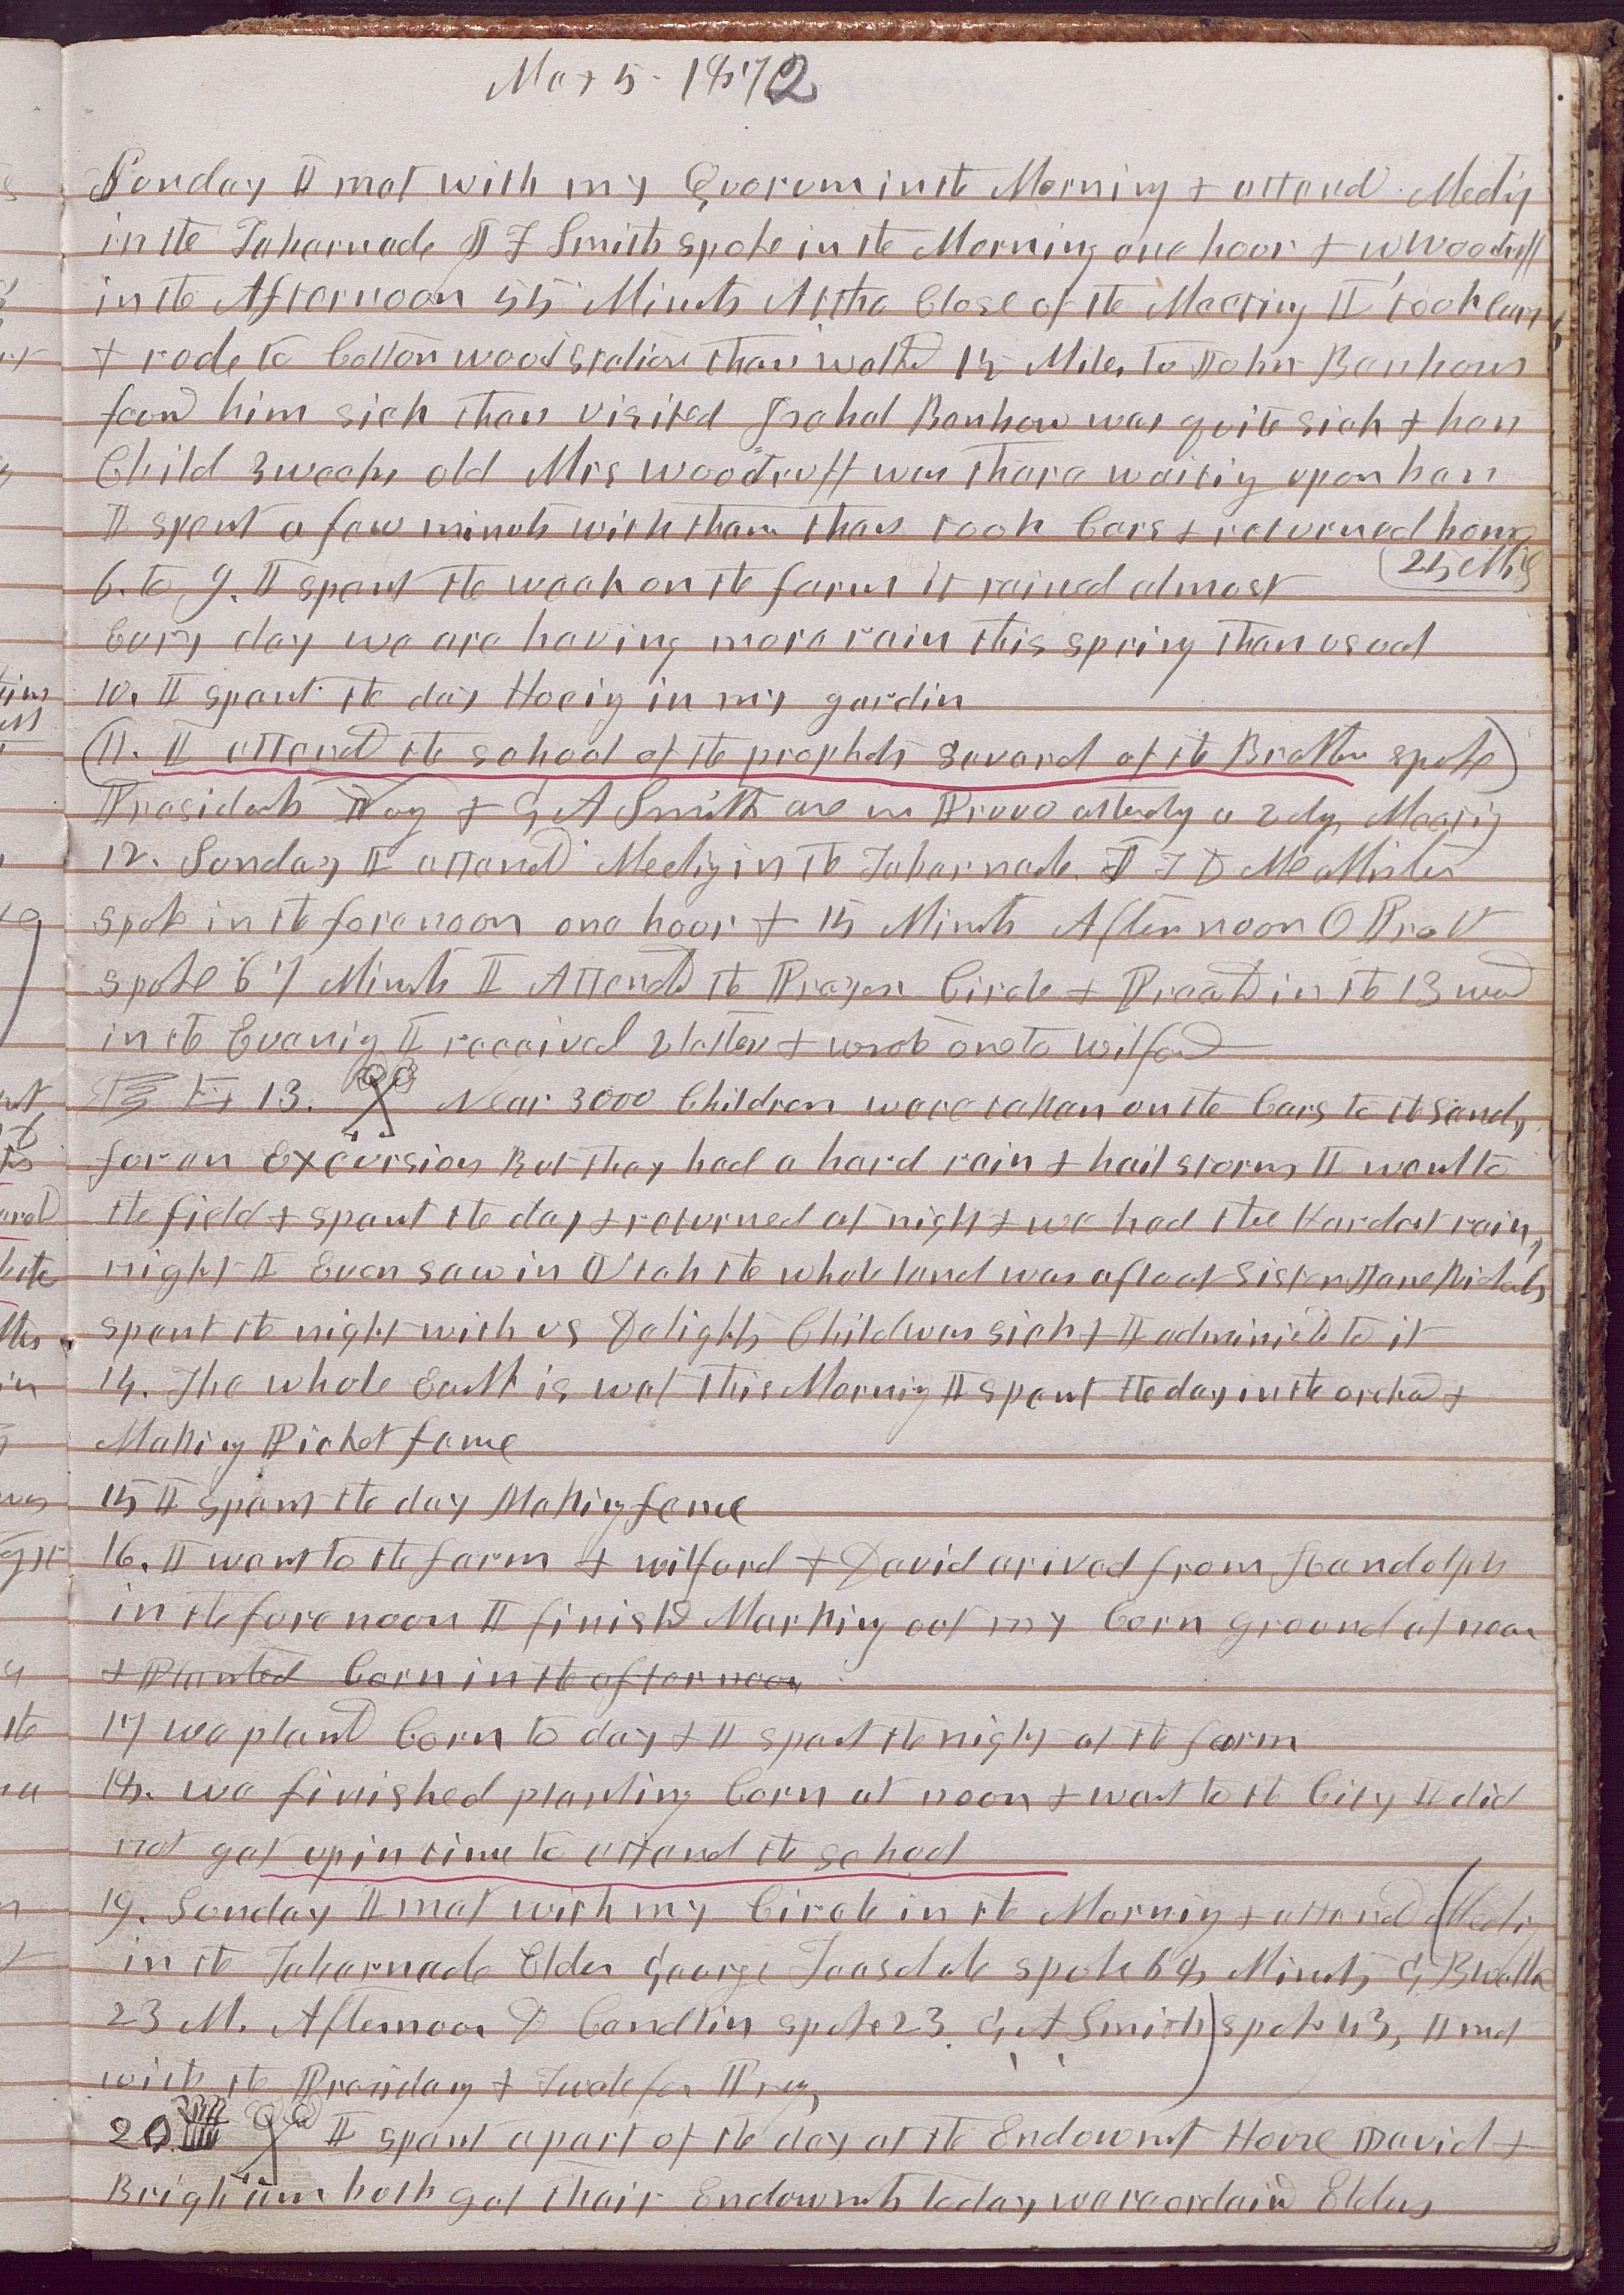 May 5. 1872
Sunday I met with my Quorum in the Morning & attend Meetig
in the Tabernacle J F Smith spoke in the Morning one hour & W Woodruff
in the Afternoon 55 Minuts At the Close of the Meeting I took Cars
& rode to Cottonwood Station then walkd 1½ Miles to John Benbows
found him sick then visited Isabel Benbow was quite sick & her
Child 3 weeks old Mrs Woodruff was there waitig upon her
I spent a few minuts with them then took Cars & returned home
25 Mils
6. to 9. I spent the week on the farm it rained almost
Evry day we are having more rain this spring than usual
10. I spent the day Hoeig in my gardin
11. I attend the school of the prophets Several of the Brethren spoke
Presidents Young & G A Smith are in Provo attendig a 2 dys Meetig
12. Sunday I attend Meetig in the Tabernacle J D T McAllister
spok in the forenoon one hour & 15 Minuts Afternoon O Pratt
spoke 67 Minuts I Attend the Prayer Circle & Preachd in the 13 ward
in the Evenig I received 2 letters & wrote one to Wilford
13. Near 3000 Children were taken on the Cars to the Sandy
for an Excursion But they had a hard rain & hail storm I went to
the field & spent the day & returned at night & we had the Hardest rain
night I Ever saw in Utah the whole land was afloat Sister Jane Richards
spent the night with us Delights Child was sick & I administd to it
14. The whole Earth is wet this Mornig I spent the day in the orchard &
Making Picket fence
15 I spent the day Making fence
16. I went to the farm & Wilford & David arived from Randolph
in the forenoon I finishd Marking out my Corn ground at noon
& Planted Corn in the afternoon
17 we plantd Corn to day & I spent the night at the farm
18. we finished planting Corn at noon & went to the City I did
not get up in time to attend the school
19. Sunday I met with my Circle in the Mornig & attend Meetig
in the Tabernacle Elder George Teasdale spoke 68 Minuts G B Wallace
23 M. Afternoon D Candlin spoke 23 G A Smith spoke 43, I met
with the Presidency & Twelve for Prayer
20 I spent a part of the day at the Endowmt House David &
Brigham both got their Endowmts today were ordaind Elders